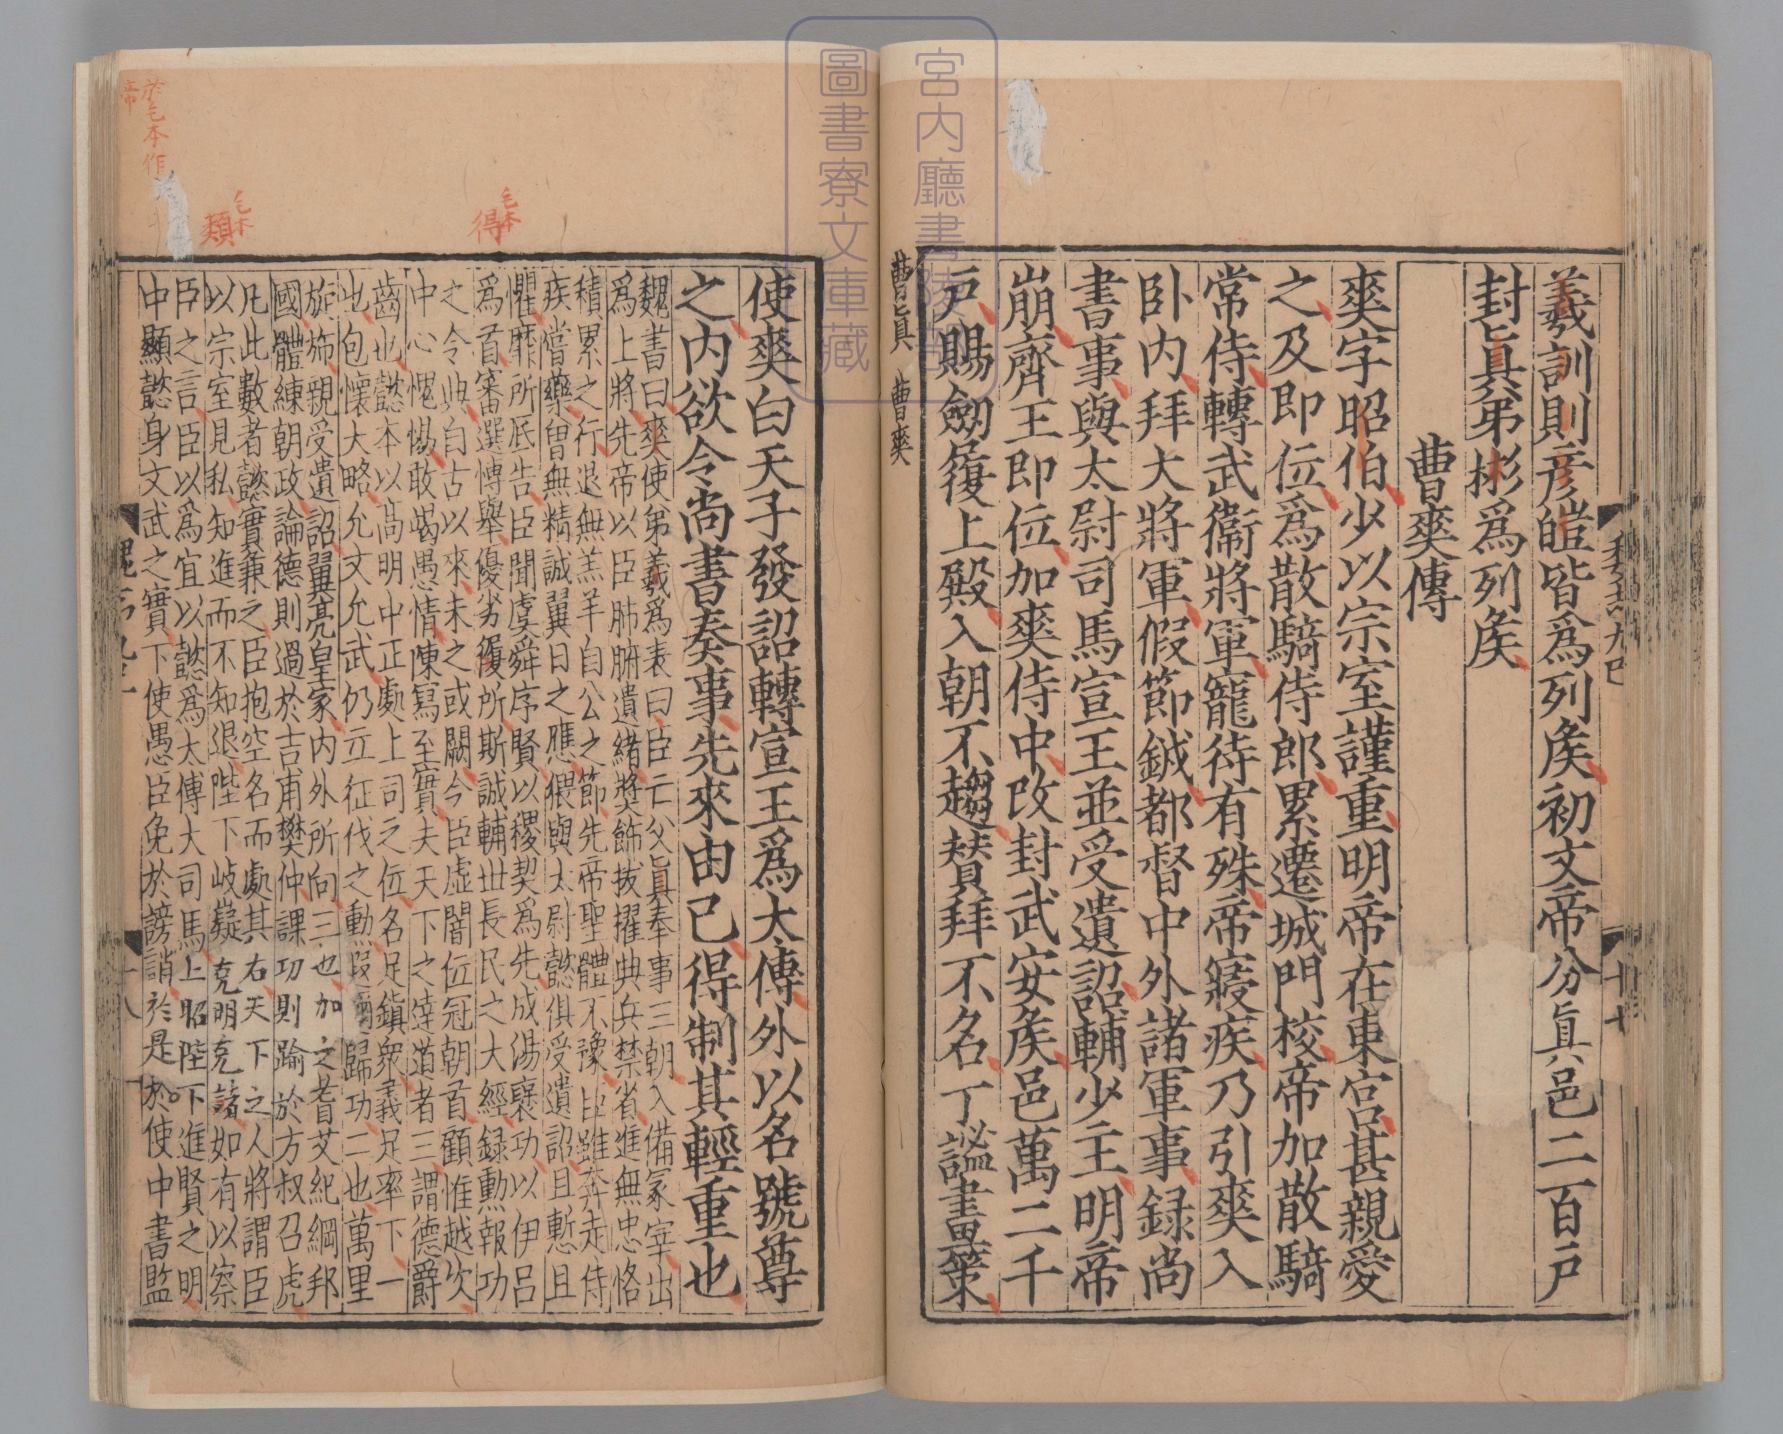 宮内廳書陵部
圖書寮文庫藏
羲訓則彦皚皆爲列矦初文帝分眞邑二百戸
封眞弟彬爲列矦
曹爽傳
爽字昭伯少以宗室謹重明帝在東宫甚親愛
之及即位爲散騎侍郎累遷城門校帝加散騎
常侍轉武衞將軍寵待有殊帝寢疾乃引爽入
卧内拜大將軍假節鉞都督中外諸軍事録尚
書事與太尉司馬宣王並受遺詔輔少主明帝
崩齊王即位加爽侍中改封武安矦邑萬二千
戸賜劒履上殿入朝不趨賛拜不名丁謐畫策
曹眞 曹爽
使爽白天子發詔轉宣王爲大傳外以名號尊
之内欲令尚書奏事先來由已得制其輕重也
魏書曰爽使弟羲爲表曰臣亡父眞奉事三朝入備冢宰出
爲上將先帝以臣肺腑遺緒奬飾拔擢典兵禁省進無忠恪
積累之行退無羔羊自公之節先帝聖體不豫臣雖奔走侍
疾甞藥曽無精誠翼日之應猥與太尉懿俱受遺詔且慙且
懼靡所底告臣聞虞舜序賢以稷契爲先成湯襃功以伊吕
爲首審選慱舉優劣得所斯誠輔丗長民之大經録勲報功
之令典自古以來未之或闕今臣虚闇位冠朝首顧惟越次
中心愧惕敢竭愚情陳寫至實夫天下之達道者三謂德爵
齒也懿本以高明中正處上司之位名足鎭衆義足率下一
也包懷大略允文允武仍立征伐之勲遐邇歸功二也萬里
旋斾親受遺詔翼亮皇家内外所向三也加之耆艾紀綱邦
國體練朝政論德則過於吉甫樊仲課功則踰於方叔召虎
凡此數者懿實兼之臣抱空名而處其右天下之人將謂臣
以宗室見私知進而不知退陛下岐嶷克明克諸如有以察
臣之言臣以爲宜以懿爲太傳大司馬上昭陛下進賢之明
中顯懿身文武之實下使愚臣免於謗誚於是於使中書監
毛本
得
毛本
類
於毛本作
帝
魏志九
十八
十七